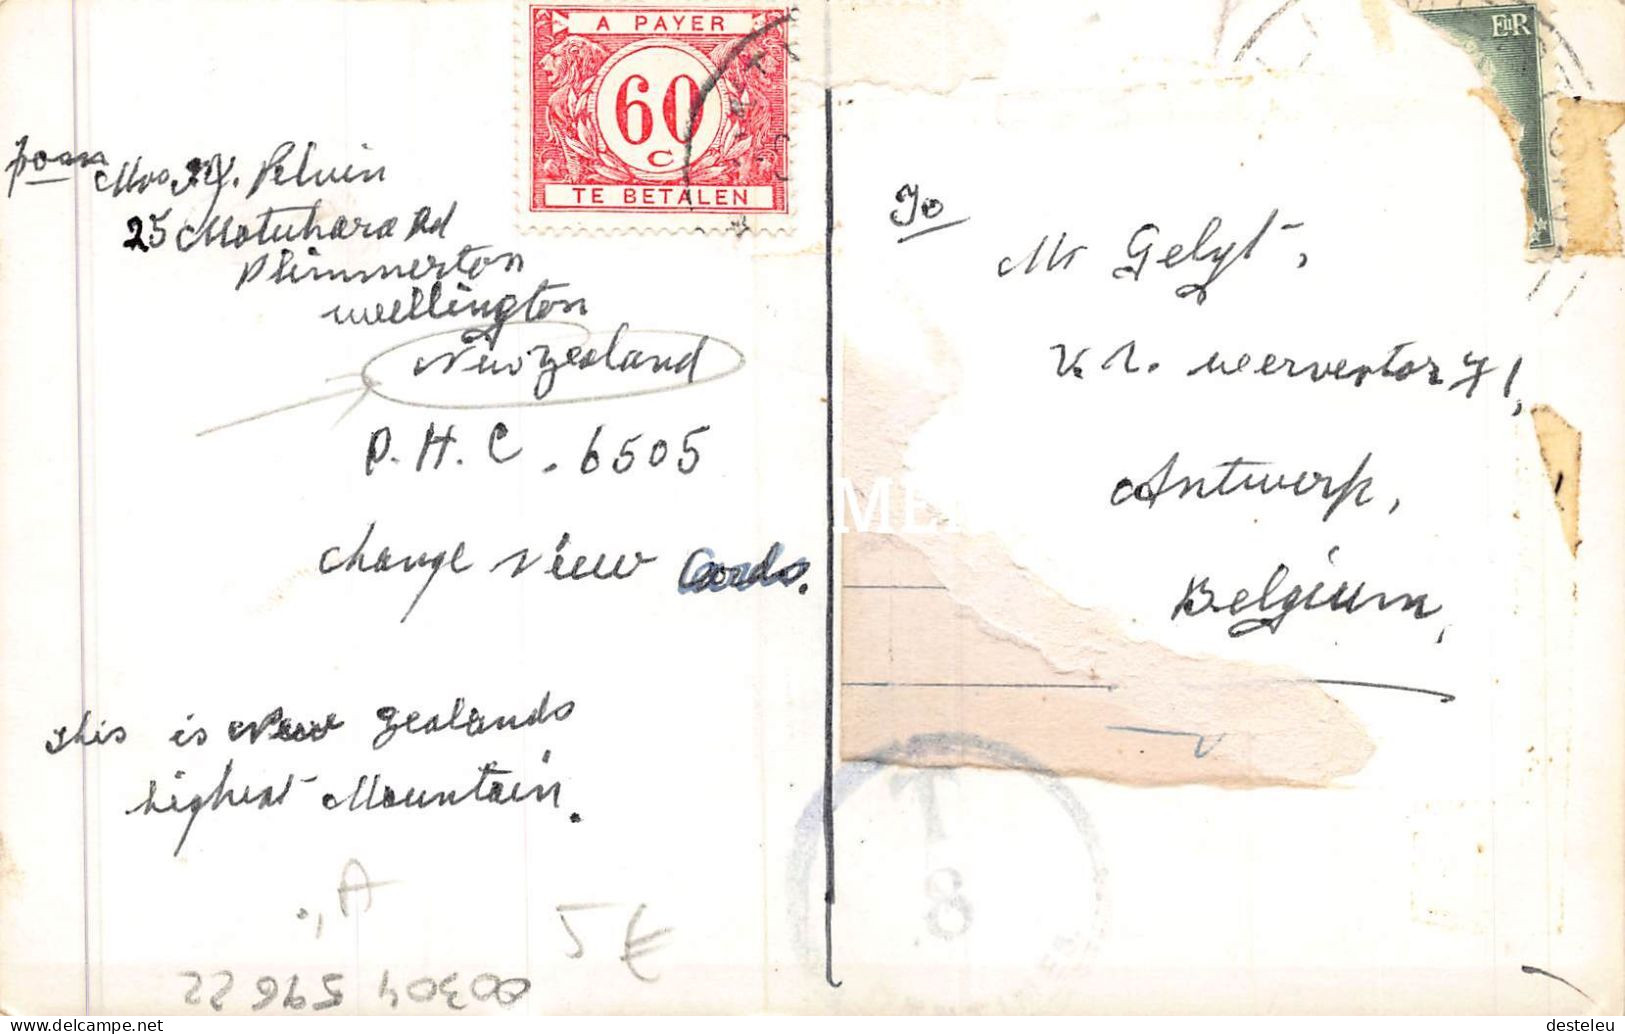 A PAYER
60
C
TE BETALEN
EIIR
from Mrs J. Pelvin
25 Motuhara Rd
Plimmerton
Wellington
New Zealand
P.H.C. 6505
Change View Cards.
This is New Zealands
highest Mountain.
To
Mr Gelyt,
71,
Antwerp,
Belgium,
T
8
A
5 €
00304 59622
desteleu